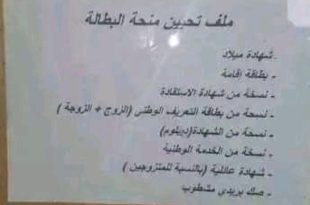 ملف تحيين منحة البطالة
- شهادة ميلاد
- بطاقة اقامة
- نسخة من شهادة الاستفادة
- نسخة من بطاقة التعريف الوطني (الزوج + الزوجة )
- نسخة من الشهادة(دبلوم)
- نسخة من الخدمة الوطنية
- شهادة عائلية (بالنسبة للمتزوجين )
- صك بريدي مشطوب